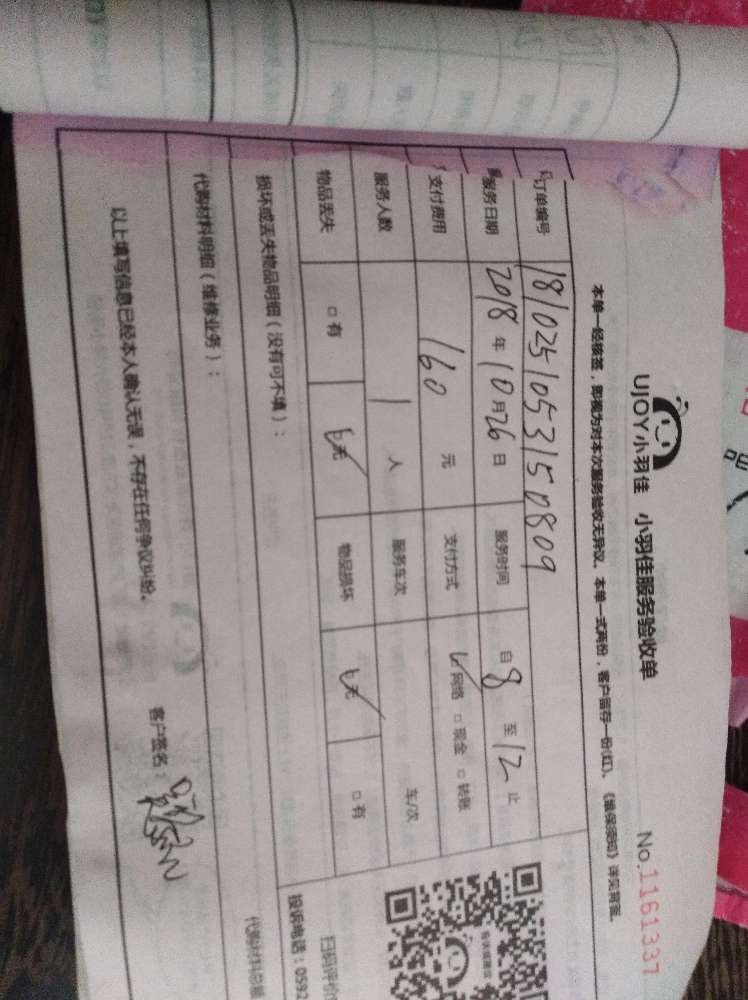 UJOY小羽佳 小羽佳服务验收单 No.1161337
本单一经核签，即视为对本次服务验收无异议。本单一式两份，客户留存一份(红)、《维保须知》详见背面。
订单编号 1810251053150809
服务日期 2018年10月26日 服务时间 自8至12止
支付费用 160元 支付方式 网络 □现金 □转账
服务人数 1人 服务车次 车/次
物品丢失 □有 无 物品损坏 无 □有
损坏或丢失物品明细（没有可不填）：
扫码评价
投诉电话：0592
代购材料明细（维修业务）：
代购材料总额
以上填写信息已经本人确认无误，不存在任何争议纠纷。 客户签名：